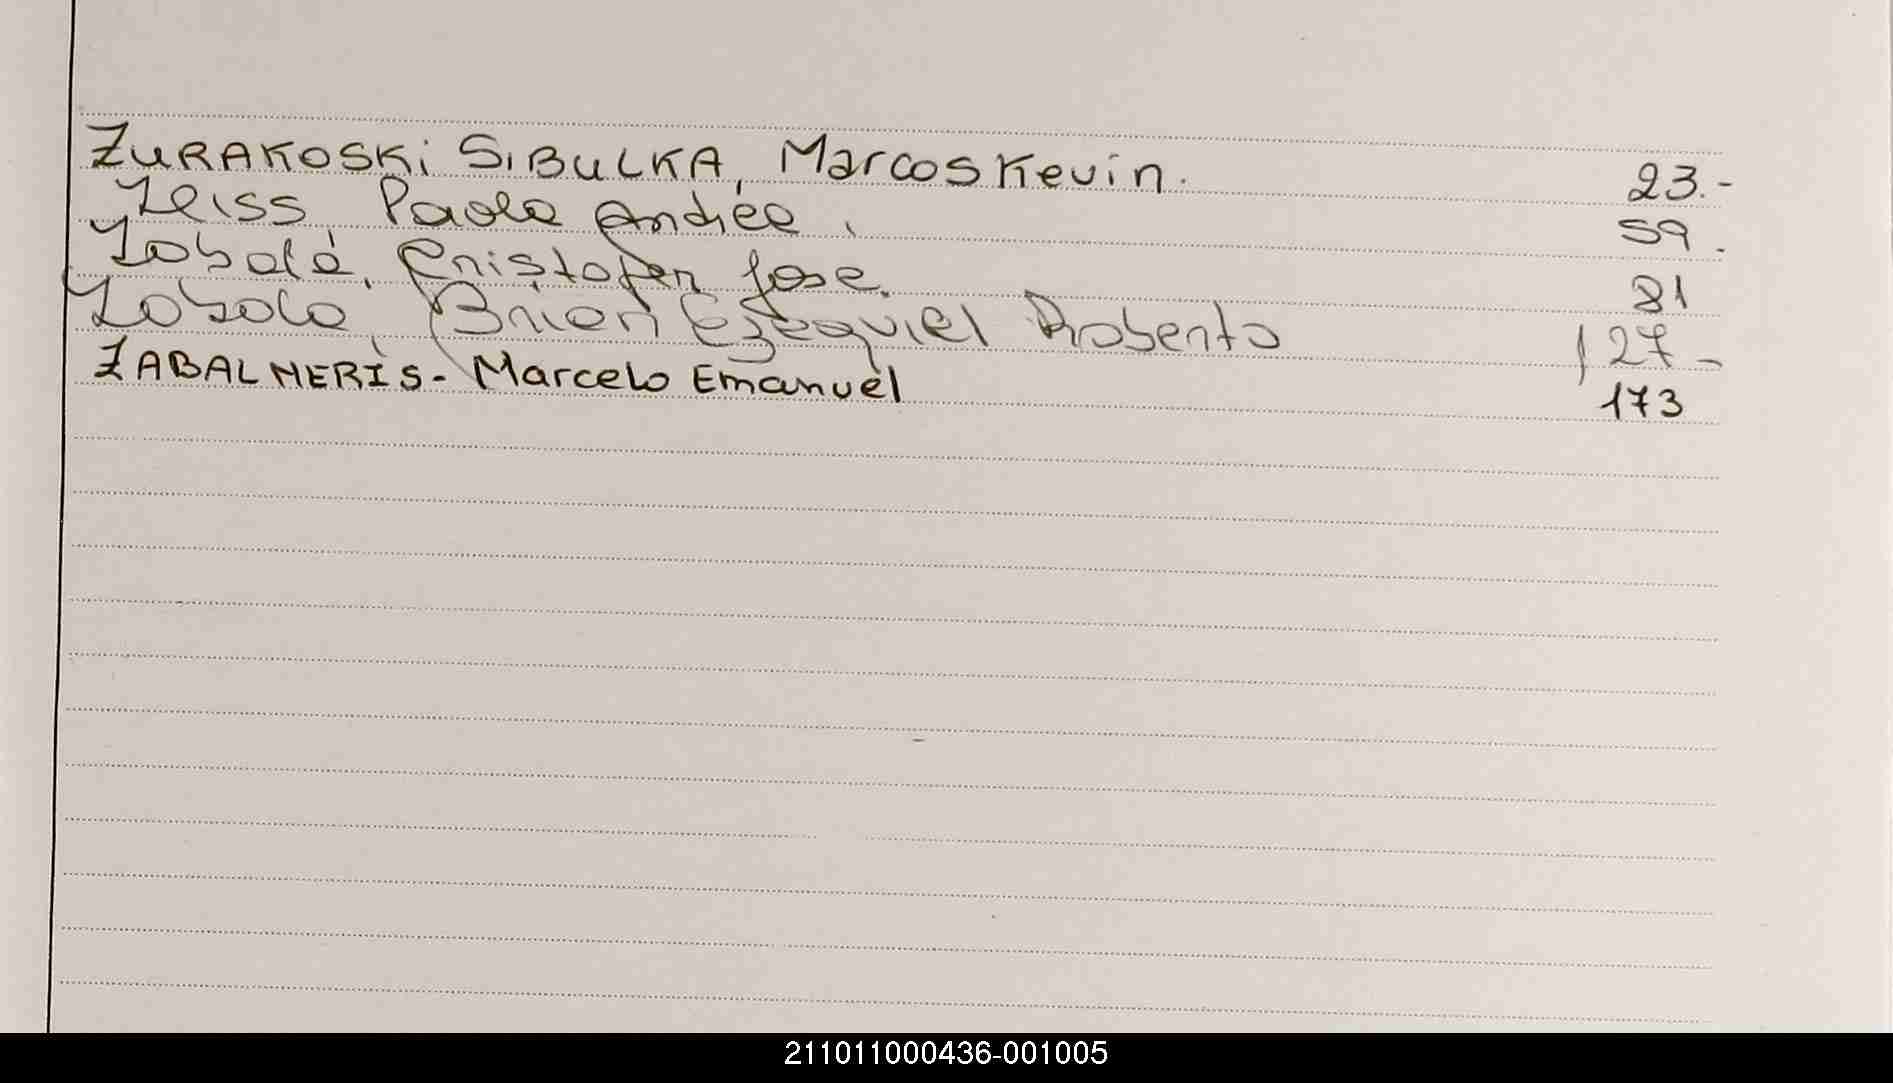 ZURAKOSKi SIBULKA, Marcos Kevin. 23.-
Zeiss Paola Andrea, 59.
Zabala, Cristofer Jose. 81
Zabala, Brian Ezequiel Roberto 127-
ZABALNERIS- Marcelo Emanuel 173
211011000436-001005